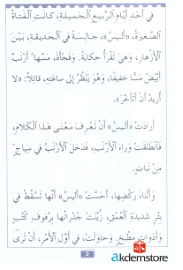 في أحد أيام الربيع الجميلة، كانت الفتاة
الصغيرة، «أليس» جالسة في الحديقة، بين
الأزهار، وهي تقرأ حكاية. وفجأة، مسها أرنب
أبيض مسا خفيفا، وهو ينظر إلى ساعته، قائلا: «لا
أريد أن أتأخر».
أرادت «أليس» أن تعرف معنى هذا الكلام،
فانطلقت وراء الأرنب، فدخل الأرنب في سياج
من نبات.
وأثناء ركضها، أحست «أليس» أنها تسقط في
بئر شديدة العمق، زينت جدرانها برفوف كتب
وأدوات مطبخ. وحاولت، في أول الأمر، أن ترى
2